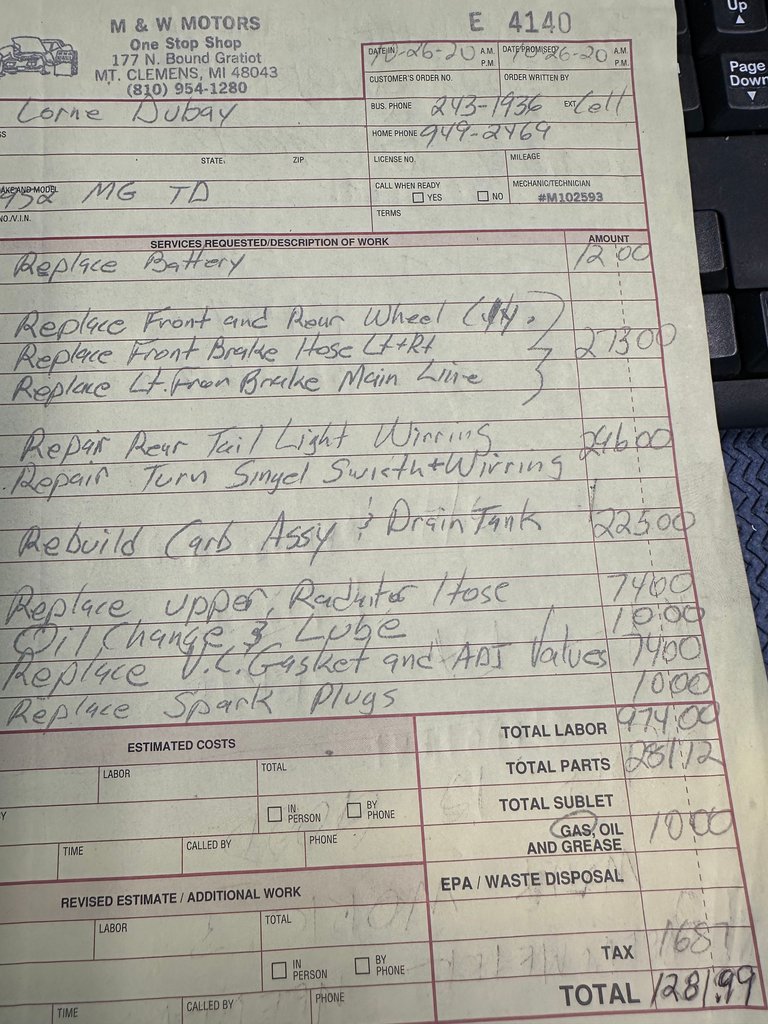 M & W MOTORS
One Stop Shop
177 N. Bound Gratiot
MT. CLEMENS, MI 48043
(810) 954-1280
E 4140
DATE IN 10-26-20 A.M. P.M. DATE PROMISED 10-26-20 A.M. P.M.
CUSTOMER'S ORDER NO. ORDER WRITTEN BY
Lorne Dubay
BUS. PHONE 243-1936 EXT. Cell
HOME PHONE 949-2469
STATE, ZIP
LICENSE NO. MILEAGE
AKE AND MODEL
952 MG TD
CALL WHEN READY YES NO
MECHANIC/TECHNICIAN
#M102593
NO./V.I.N.
TERMS
SERVICES REQUESTED/DESCRIPTION OF WORK AMOUNT
Replace Battery 12 00
Replace Front and Rear Wheel Cyl.
Replace Front Brake Hose Lt+Rt 273 00
Replace Lt. Fron Brake Main Line
Repair Rear Tail Light Wirring 246 00
Repair Turn Singel Swicth+Wirring
Rebuild Carb Assy & Drain Tank 225 00
Replace upper, Raduter Hose 74 00
Oil Change & Lube 10 00
Replace V.C. Gasket and ADJ Valves 74 00
Replace Spark Plugs 10 00
TOTAL LABOR 974 00
ESTIMATED COSTS
TOTAL PARTS 281.12
LABOR TOTAL
TOTAL SUBLET
IN PERSON BY PHONE
GAS, OIL AND GREASE 10 00
TIME CALLED BY PHONE
EPA / WASTE DISPOSAL
REVISED ESTIMATE / ADDITIONAL WORK
LABOR TOTAL
TAX 16 87
IN PERSON BY PHONE
TOTAL 1281.99
TIME CALLED BY PHONE
Up
Page
Down